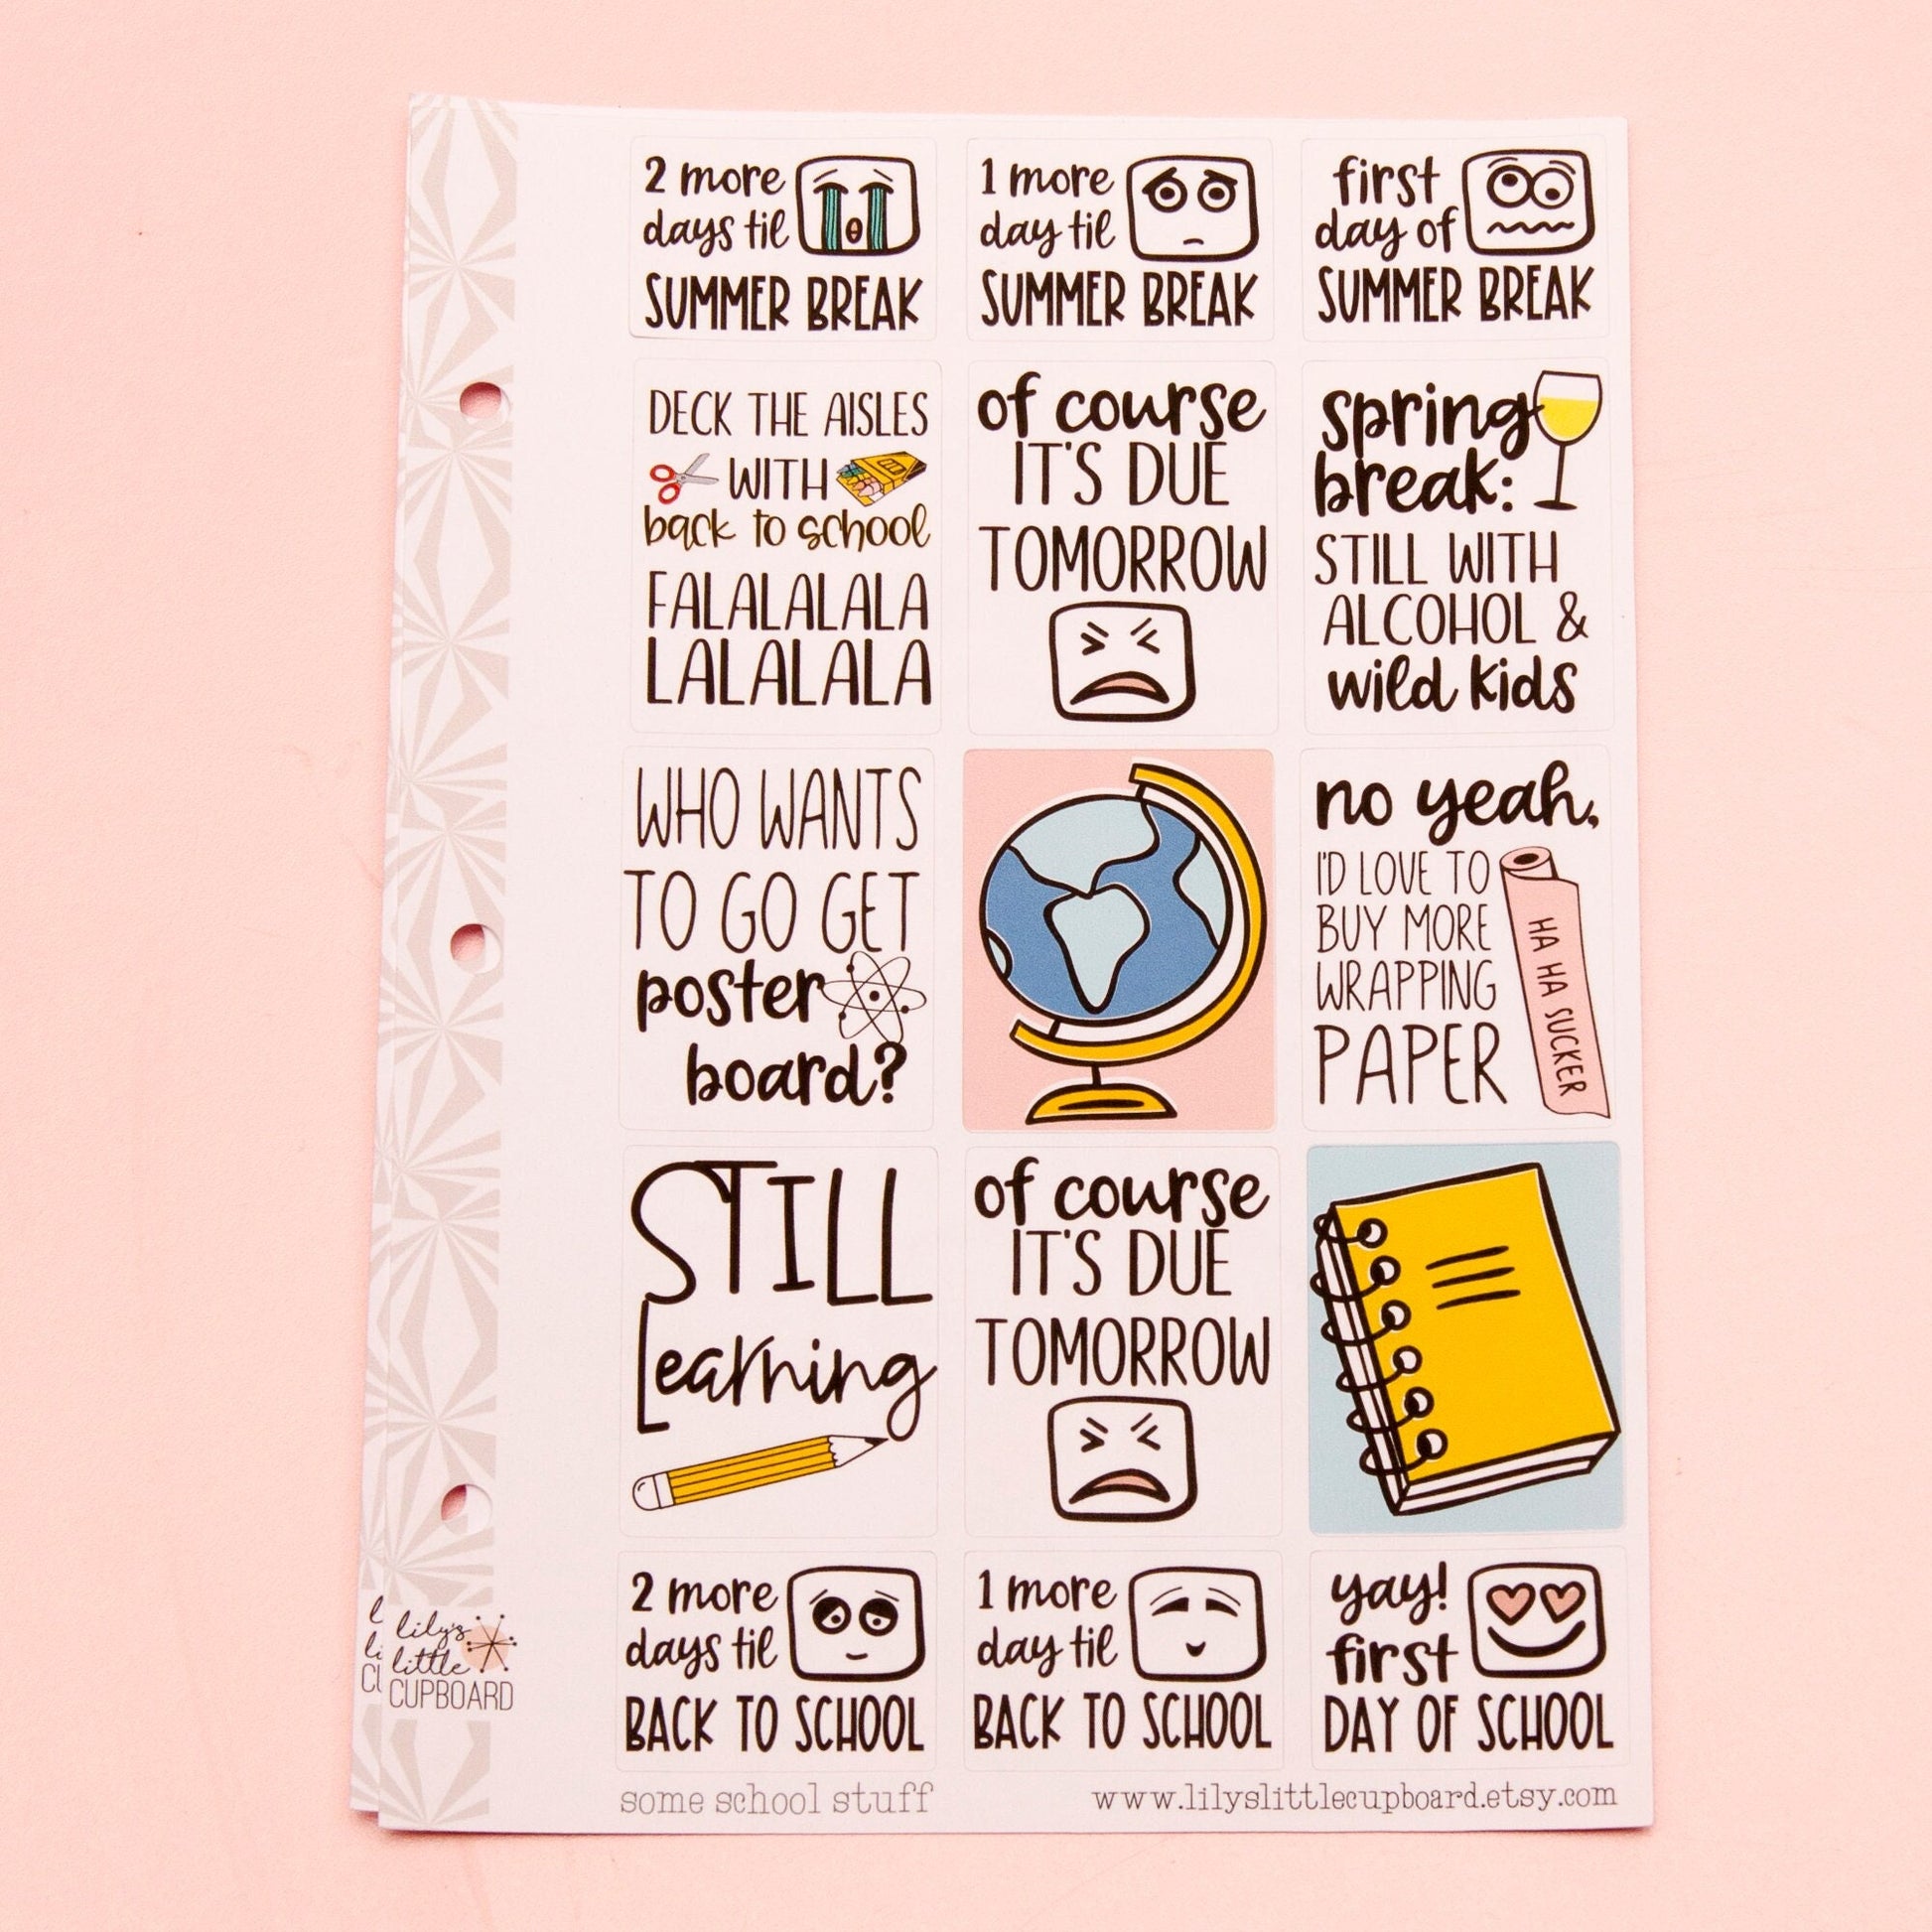 2 more
days til
SUMMER BREAK
1 more
day til
SUMMER BREAK
first
day of
SUMMER BREAK
DECK THE AISLES
WITH
back to school
FALALALALA
LALALALA
of course
IT'S DUE
TOMORROW
spring
break:
STILL WITH
ALCOHOL &
wild kids
WHO WANTS
TO GO GET
poster
board?
no yeah,
I'D LOVE TO
BUY MORE
WRAPPING
PAPER
HA HA SUCKER
STILL
Learning
of course
IT'S DUE
TOMORROW
2 more
days til
BACK TO SCHOOL
1 more
day til
BACK TO SCHOOL
yay!
first
DAY OF SCHOOL
lily's
little
CUPBOARD
some school stuff
www.lilyslittlecupboard.etsy.com